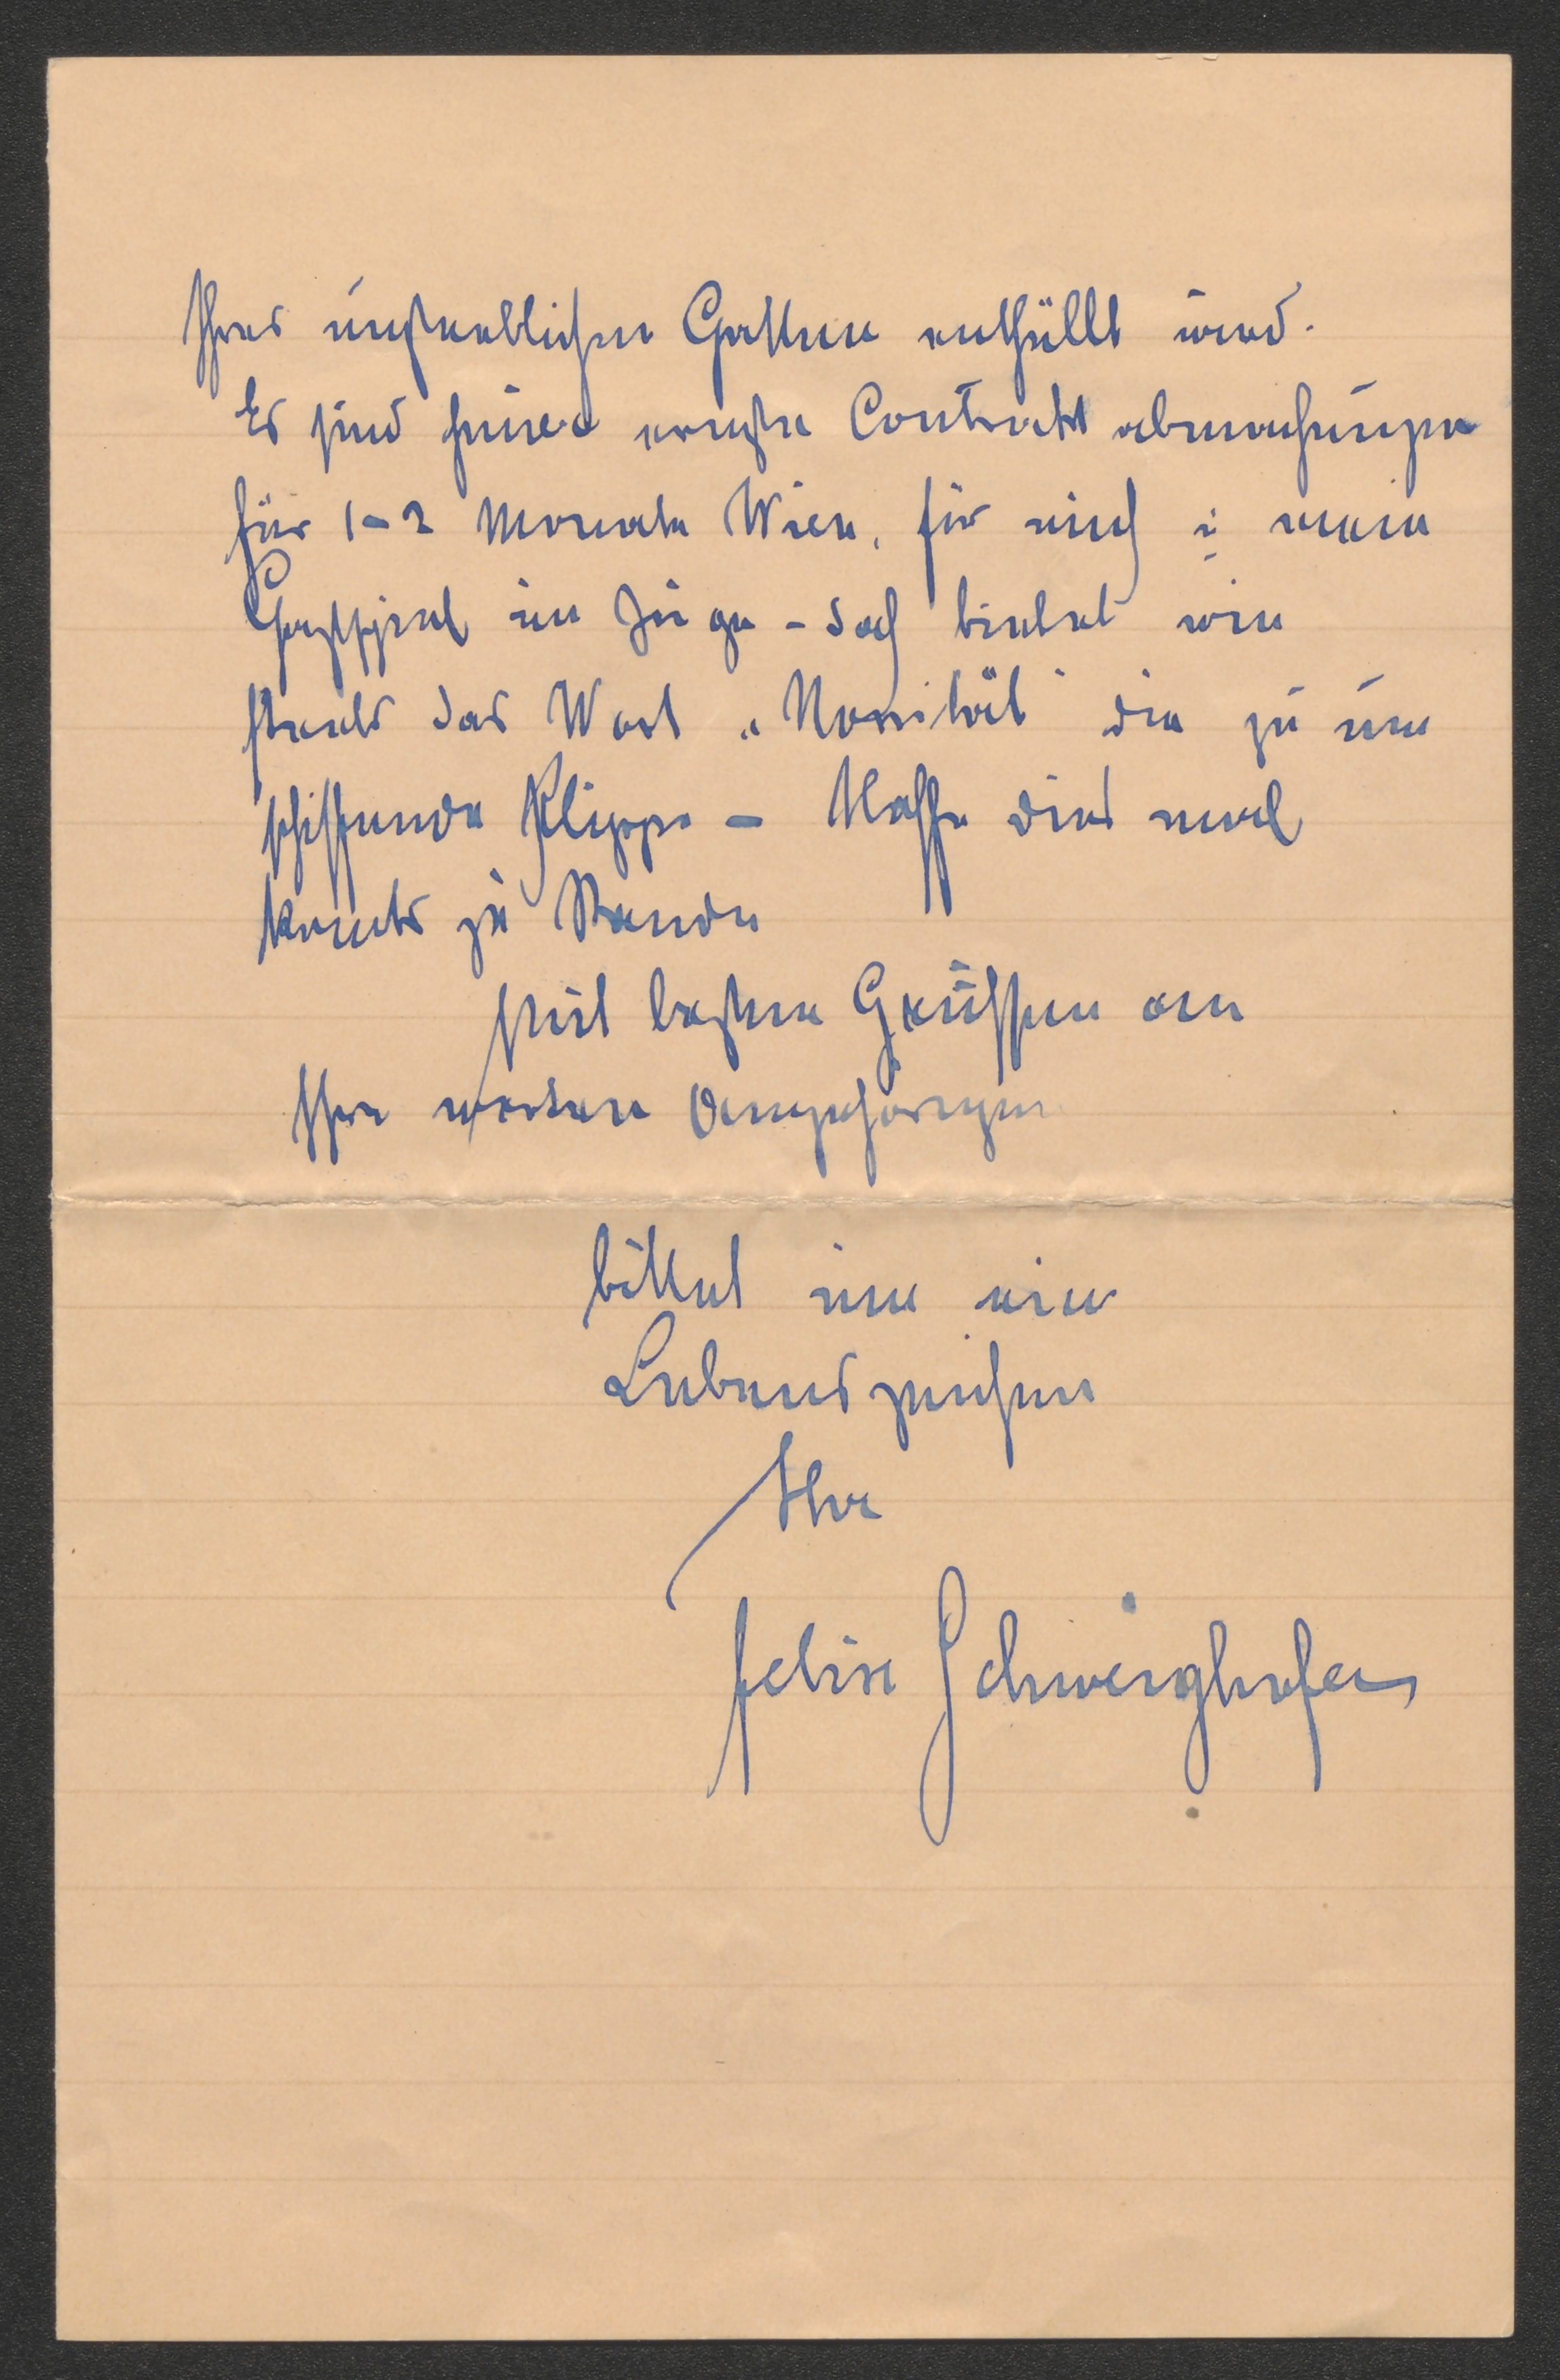 Ihres unsterblichen Gatten enthüllt wird.
Es sind heuer ernste Contrakt abmachungen
für 1-2 Monate Wien, für mich u mein
Gastspiel im Zuge - doch bietet wie
stets das Wort „Novität" die zu um
schiffende Klippe - Hoffe dies mal
komts zu Stande
Mit besten Grüssen an
Ihre werten Angehörigen
bittet um ein
Lebenszeichen
Ihr
Felix Schweighofer